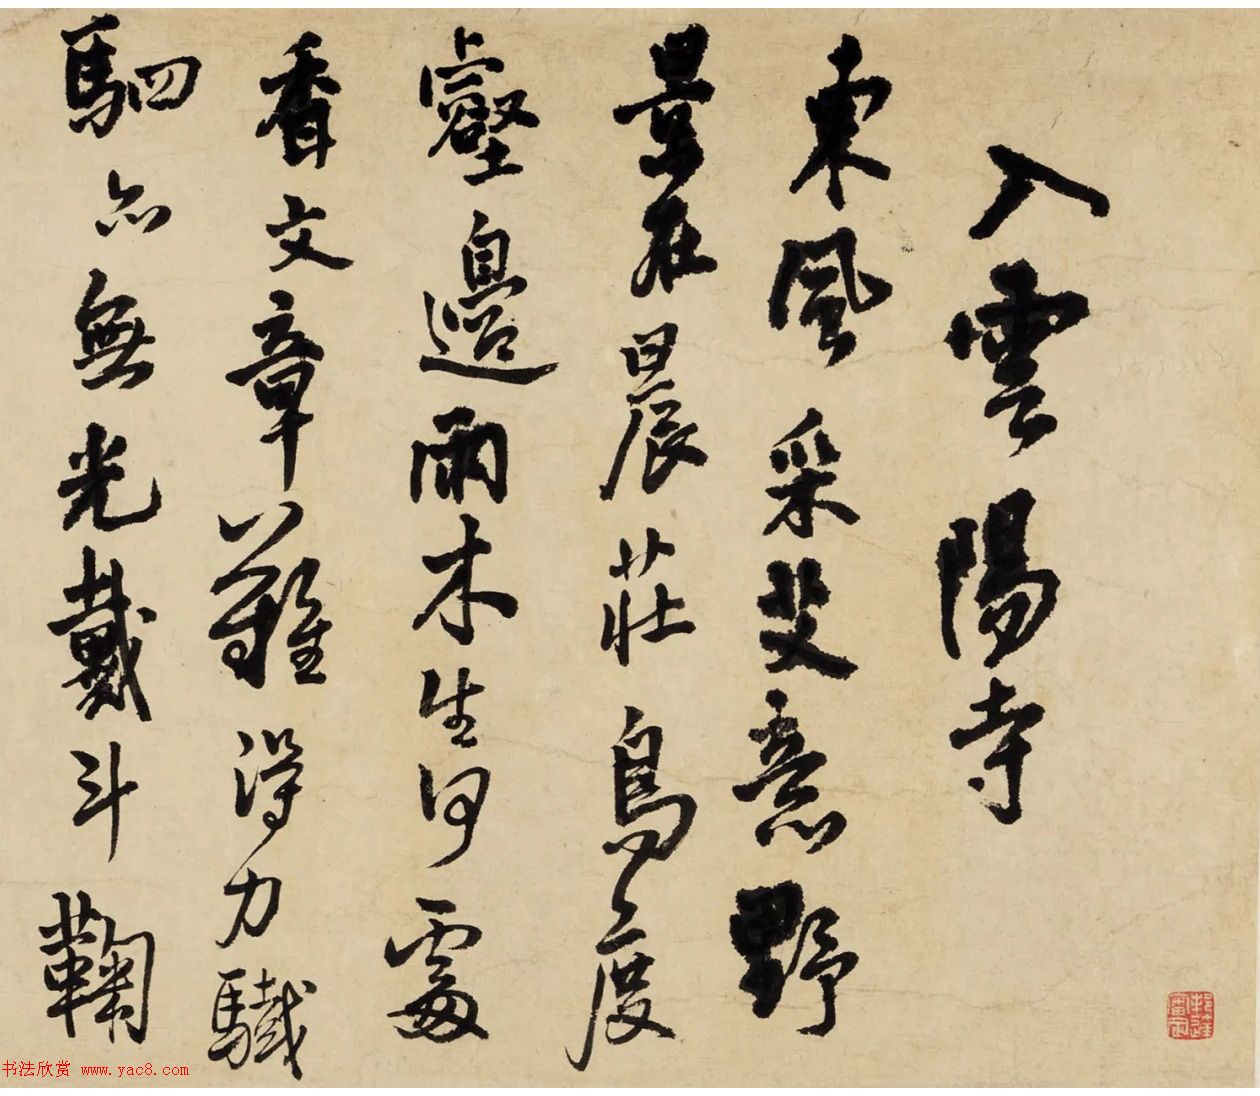 入雲陽寺
東風采艾意野
景在晨莊鳥度
壑邊雨木生何處
香文章難得力驖
駟亦無光戴斗鞠
书法欣赏 www.yac8.com